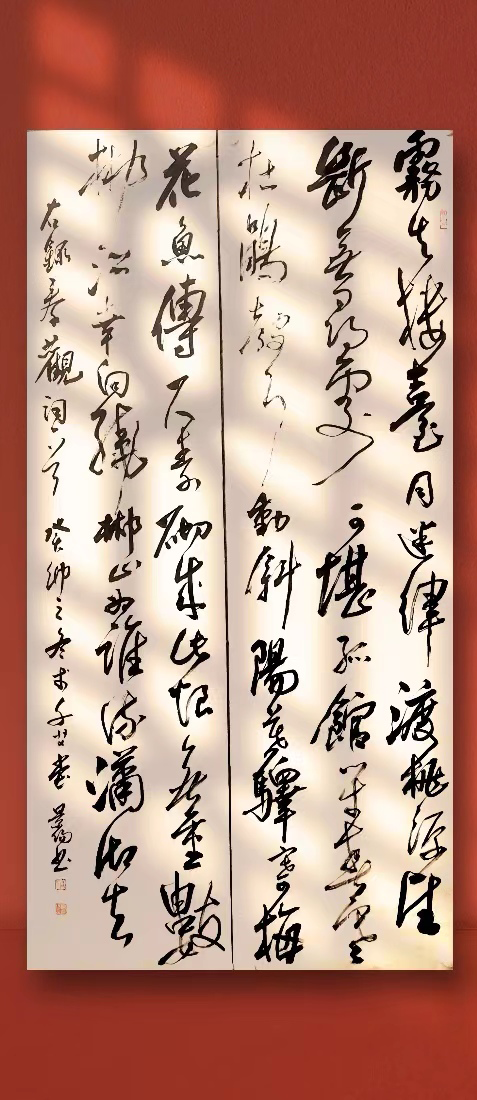 霧失樓臺月迷津渡桃源望
斷無尋處可堪孤館閉春寒
杜鵑聲裏動斜陽暮驛寄梅
花魚傳尺素砌成此恨無重數
郴江幸自繞郴山為誰流瀟湘去
右錄秦觀詞一首癸卯之冬於千堂書